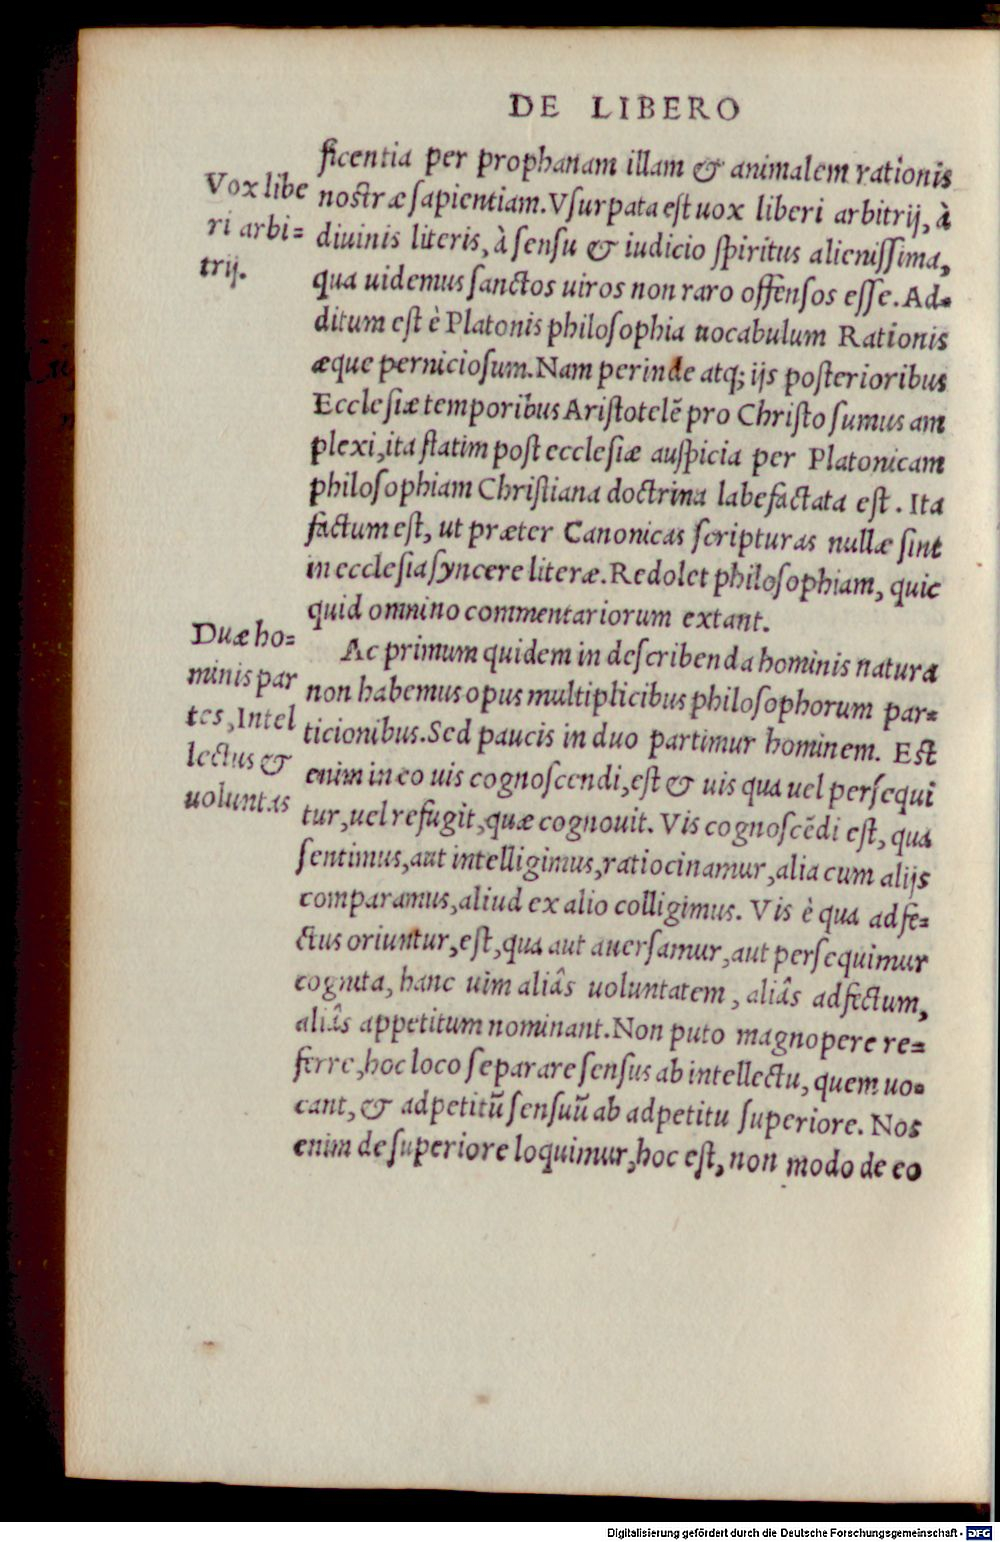 DE LIBERO
ficentia per prophanam illam & animalem rationis
nostræ sapientiam. Vsurpata est uox liberi arbitrij, à
diuinis literis, à sensu & iudicio spiritus alienissima,
qua uidemus sanctos uiros non raro offensos esse. Ad=
ditum est è Platonis philosophia uocabulum Rationis
æque perniciosum. Nam perinde atq; ijs posterioribus
Ecclesiæ temporibus Aristotelē pro Christo sumus am
plexi, ita statim post ecclesiæ auspicia per Platonicam
philosophiam Christiana doctrina labefactata est. Ita
factum est, ut præter Canonicas scripturas nullæ sint
in ecclesia syncere literæ. Redolet philosophiam, quic
quid omnino commentariorum extant.
Vox libe
ri arbi=
trij.
Ac primum quidem in describenda hominis natura
non habemus opus multiplicibus philosophorum par=
ticionibus. Sed paucis in duo partimur hominem. Est
enim in eo uis cognoscendi, est & uis qua uel persequi
tur, uel refugit, quæ cognouit. Vis cognoscēdi est, qua
sentimus, aut intelligimus, ratiocinamur, alia cum alijs
comparamus, aliud ex alio colligimus. Vis è qua adfe=
ctus oriuntur, est, qua aut auersamur, aut persequimur
cognita, hanc uim aliâs uoluntatem, aliâs adfectum,
aliâs appetitum nominant. Non puto magnopere re=
ferre, hoc loco separare sensus ab intellectu, quem uo=
cant, & adpetitū sensuū ab adpetitu superiore. Nos
enim de superiore loquimur, hoc est, non modo de eo
Duæ ho=
minis par
tes, Intel
lectus &
uoluntas
Digitalisierung gefördert durch die Deutsche Forschungsgemeinschaft - DFG